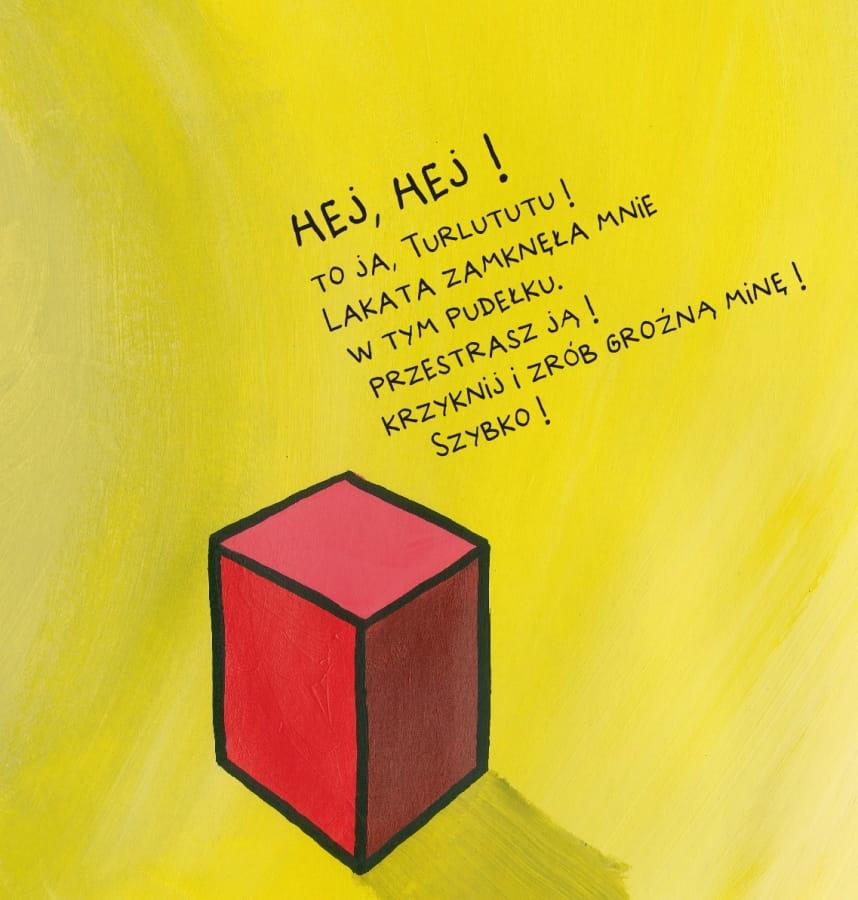 HEJ, HEJ !
TO JA, TURLUTUTU !
LAKATA ZAMKNĘŁA MNIE
W TYM PUDEŁKU.
PRZESTRASZ JĄ !
KRZYKNIJ I ZRÓB GROŹNĄ MINĘ !
SZYBKO !